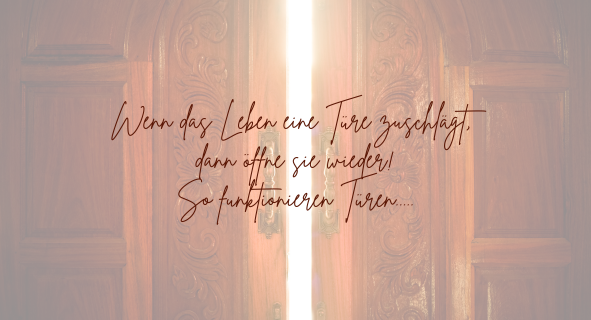 Wenn das Leben eine Türe zuschlägt,
dann öffne sie wieder!
So funktionieren Türen.....